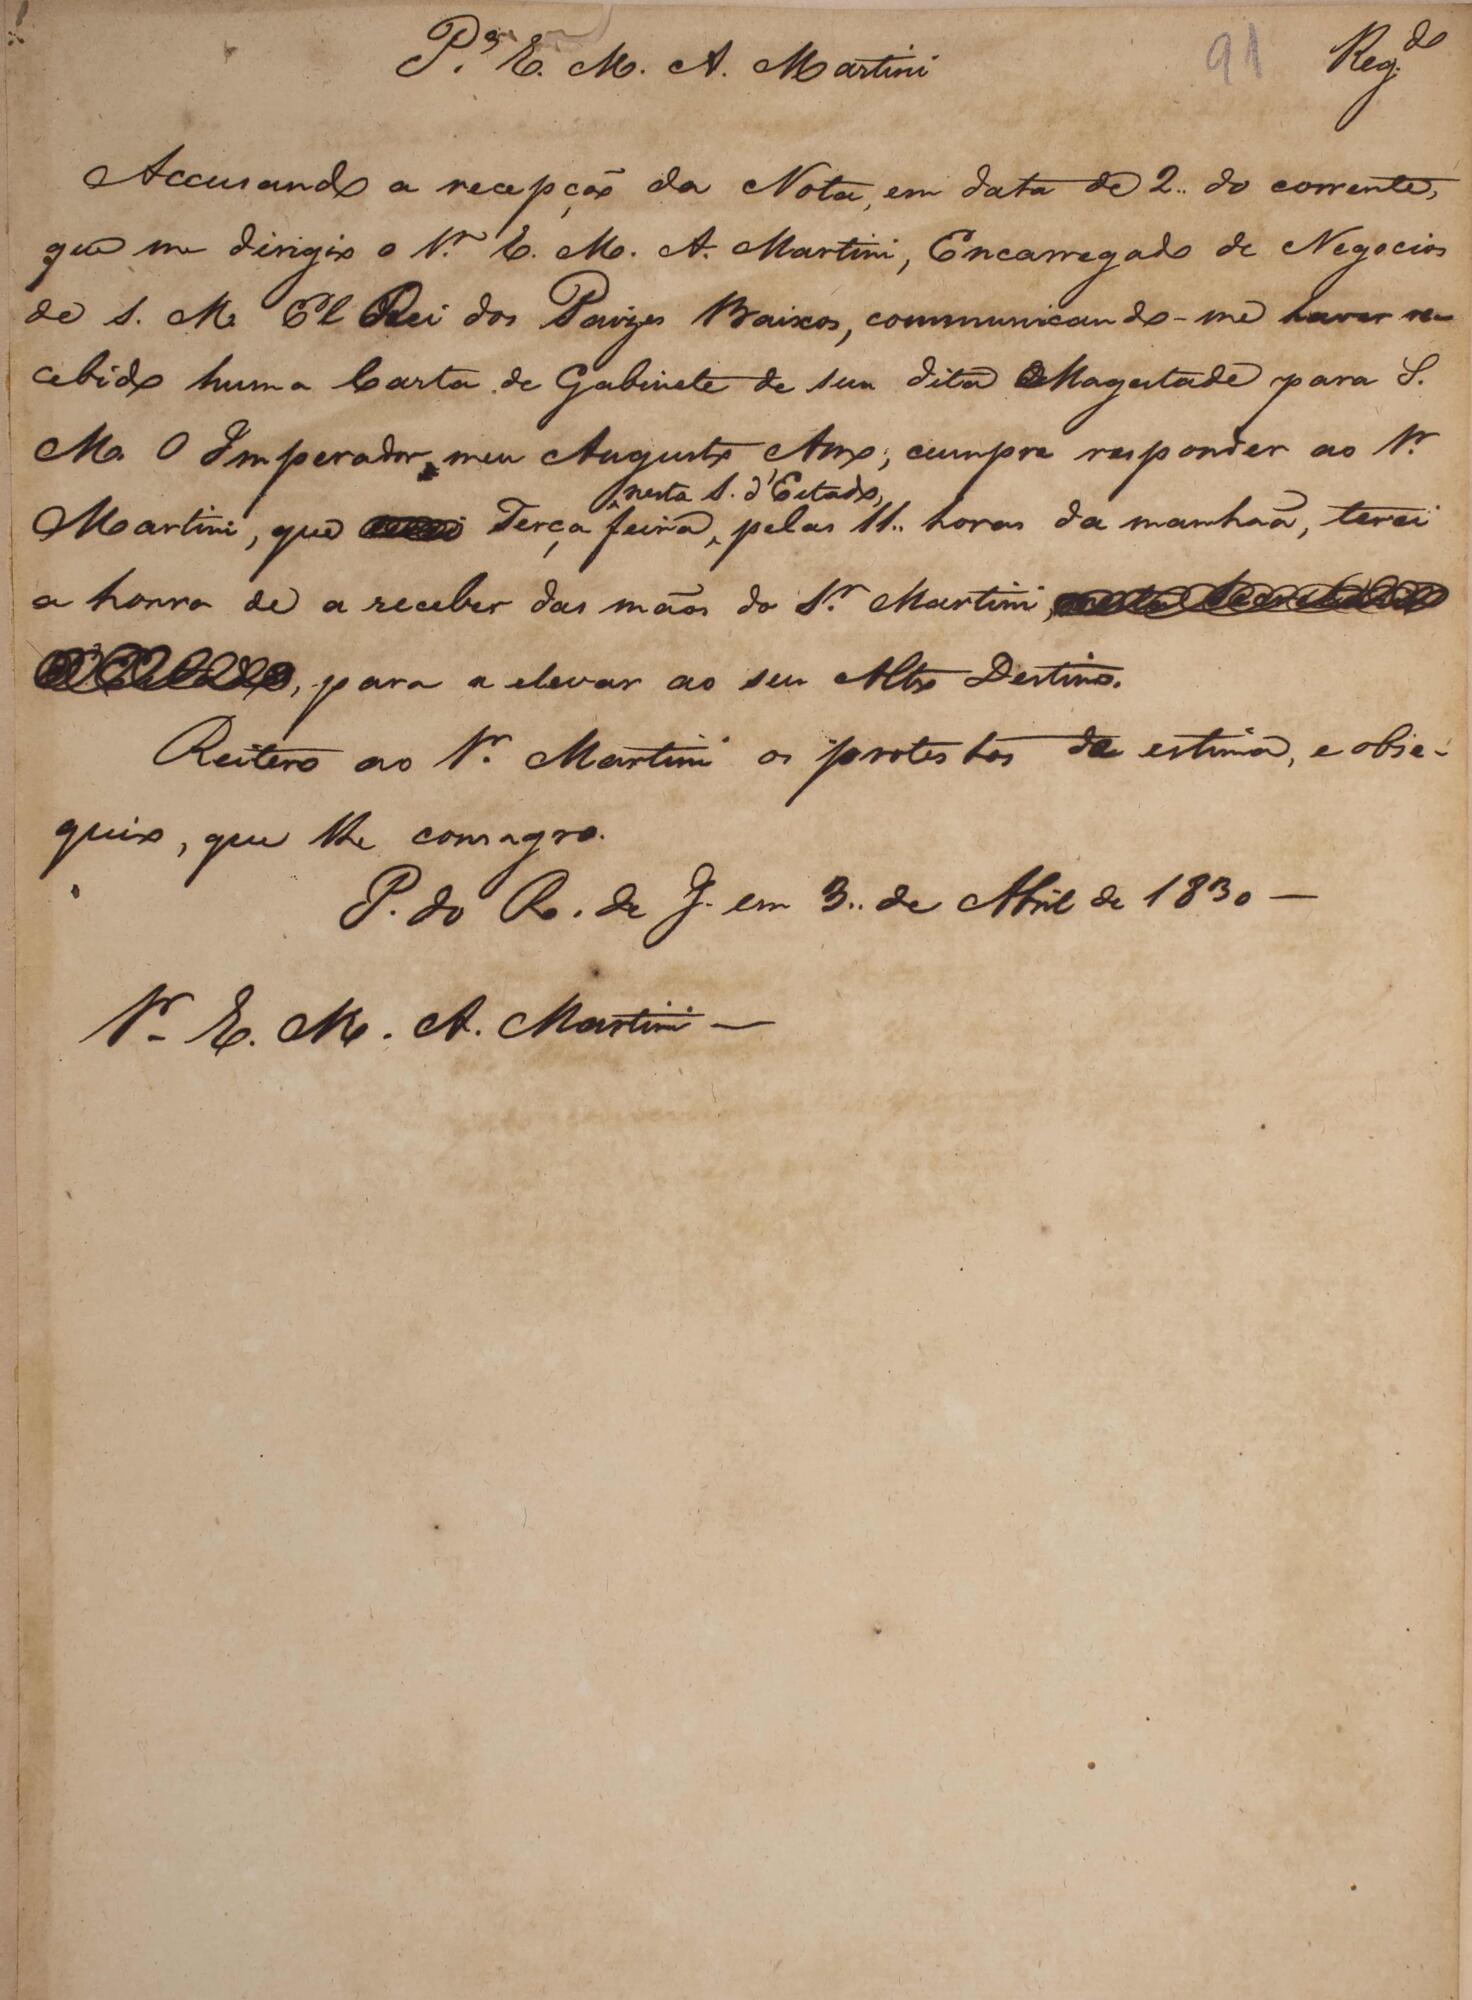 P.ª E. M. A. Martini
91
Reg.do
Accusando a recepção da Nota, em data de 2.. do corrente,
que me dirigio o Sr. E. M. A. Martini, Encarregado de Negocios
de S. M. El Rei dos Paizes Baixos, communicando-me haver re-
cebido huma Carta de Gabinete de sua dita Magestade para S.
M. O Imperador, meu Augusto Amo; cumpre responder ao Sr.
nesta S. d'Estado,
Martini, que Terça feira, pelas 11.. horas da manhaã, terei
a honra de a receber das mãos do Sr. Martini, nesta Secretaria
d'Estado, para a elevar ao seu Alto Destino.
Reitero ao Sr. Martini os protestos de estima, e obse-
quio, que lhe consagro.
P. do R. de J. em 3.. de Abril de 1830 —
Sr. E. M. A. Martini —